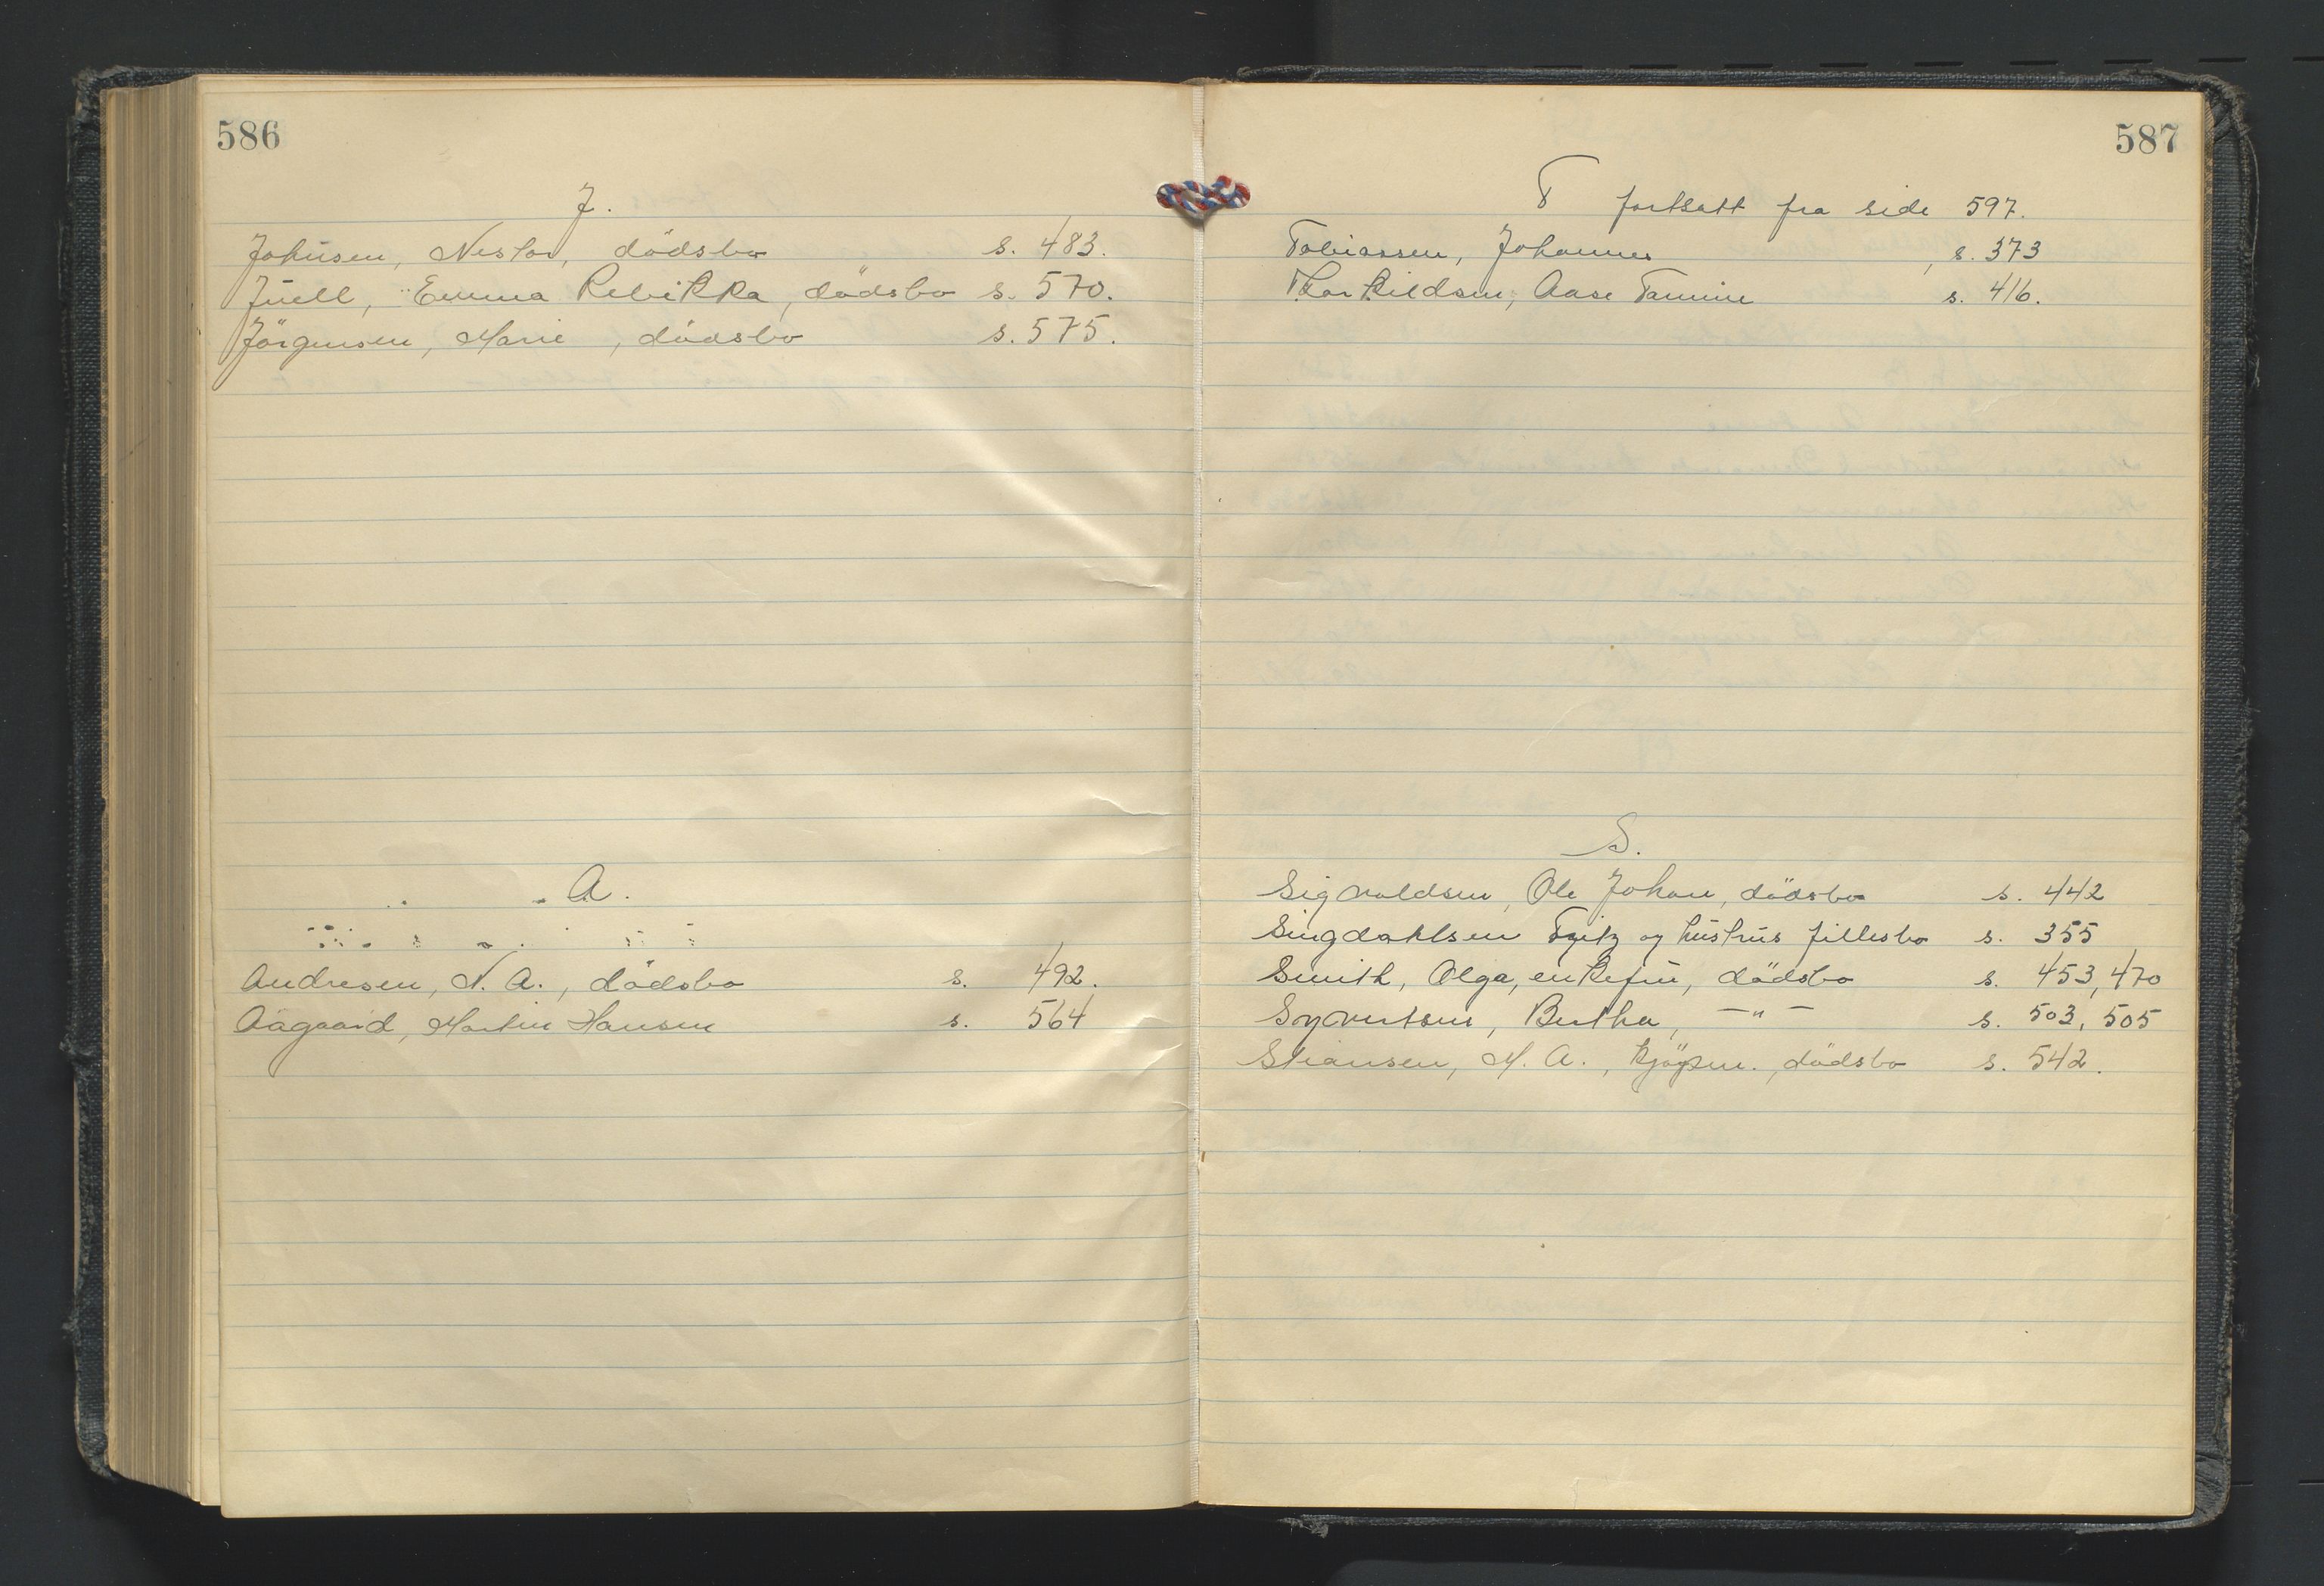 586
J.
Johnsen, Nestor, dödsbo s. 483.
Juell, Emma Rebekka, dödsbo s. 570.
Jörgensen, Marie, dödsbo s. 575.
A.
Andresen, N. A., dödsbo s. 492.
Aagaard, Martin Hansen s. 564
587
T fortsatt fra side 597.
Tobiassen, Johannes, s. 373
Thorkildsen, Aase Tamine s. 416.
S.
Sigvaldsen, Ole Johan, dödsbo s. 442
Singdahlsen Fritz og hustrus fellesbo s. 355
Smith, Olga, enkefru, dödsbo s. 453, 470
Syvertsen, Bertha, —"— s. 503, 505
Stiansen, M. A., kjöpm. dödsbo s. 542.